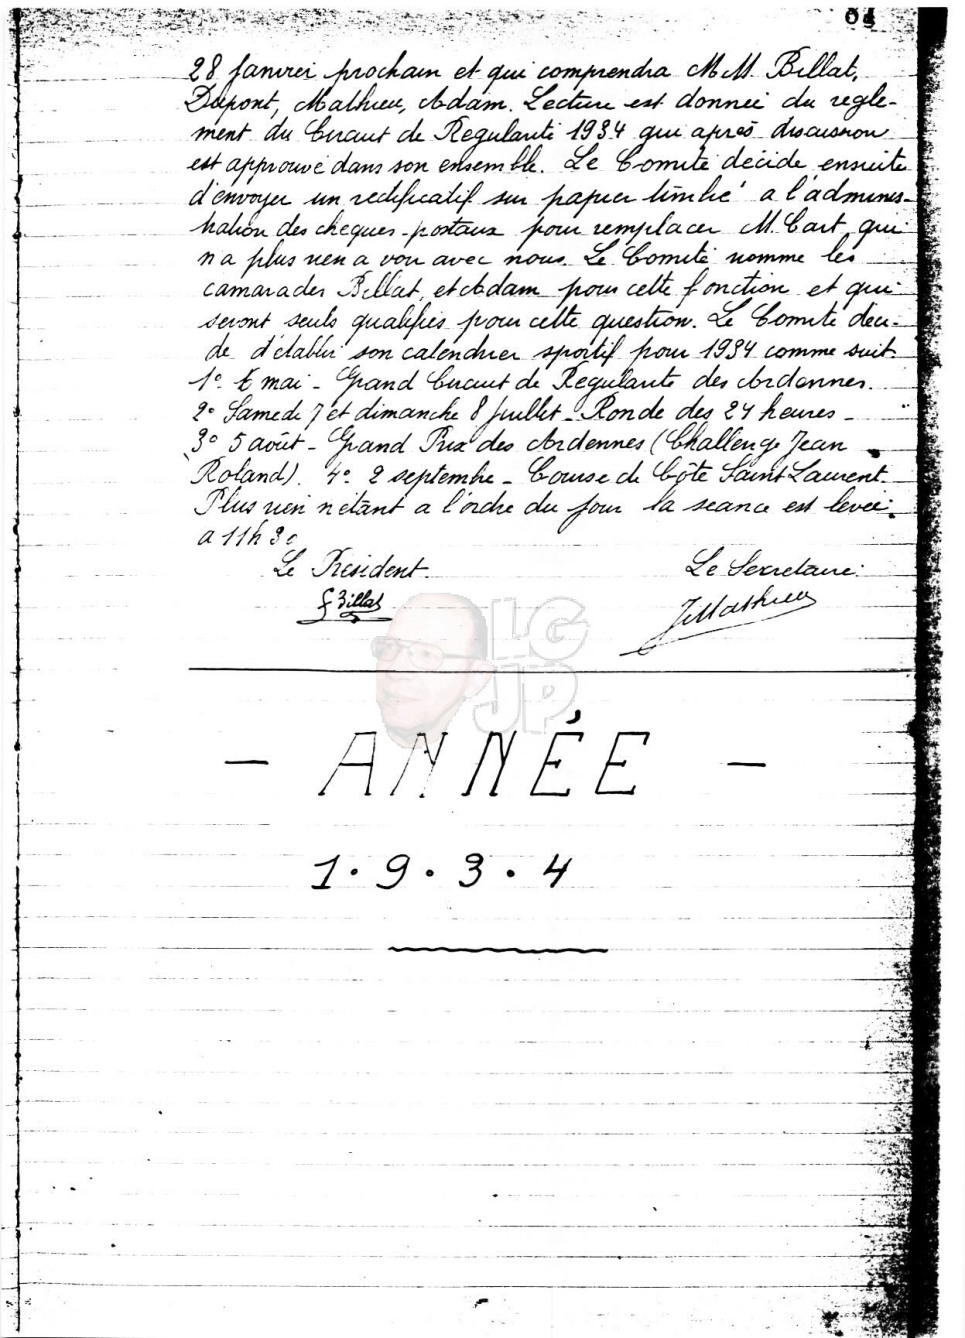 61
28 Janvier prochain et qui comprendra M.M. Billat,
Dupont, Mathieu, Adam. Lecture est donnée du règle-
ment du Circuit de Régularité 1934 qui après discussion
est approuvé dans son ensemble. Le Comité décide ensuite
d'envoyer un rectificatif sur papier timbré a l'adminis-
tration des cheques-postaux pour remplacer M. Cart, qui
n'a plus rien a voir avec nous. Le Comité nomme les
camarades Billat, et Adam pour cette fonction et qui
seront seuls qualifiés pour cette question. Le Comité deci-
de d'établir son calendrier sportif pour 1934 comme suit
1° 6 mai - Grand Circuit de Régularité des Ardennes.
2° Samedi 7 et dimanche 8 Juillet - Ronde des 24 heures -
3° 5 août - Grand Prix des Ardennes (Challenge Jean
Roland). 4° 2 septembre - Course de Côte Saint Laurent.
Plus rien n'étant a l'ordre du jour la seance est levée
a 11h30
Le President.
Le Secretaire:
Billat
JMathieu
LG
JP
- ANNÉE -
1.9.3.4